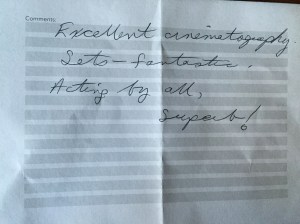 Comments:
Excellent cinematography.
Sets - fantastic.
Acting by all,
Superb!